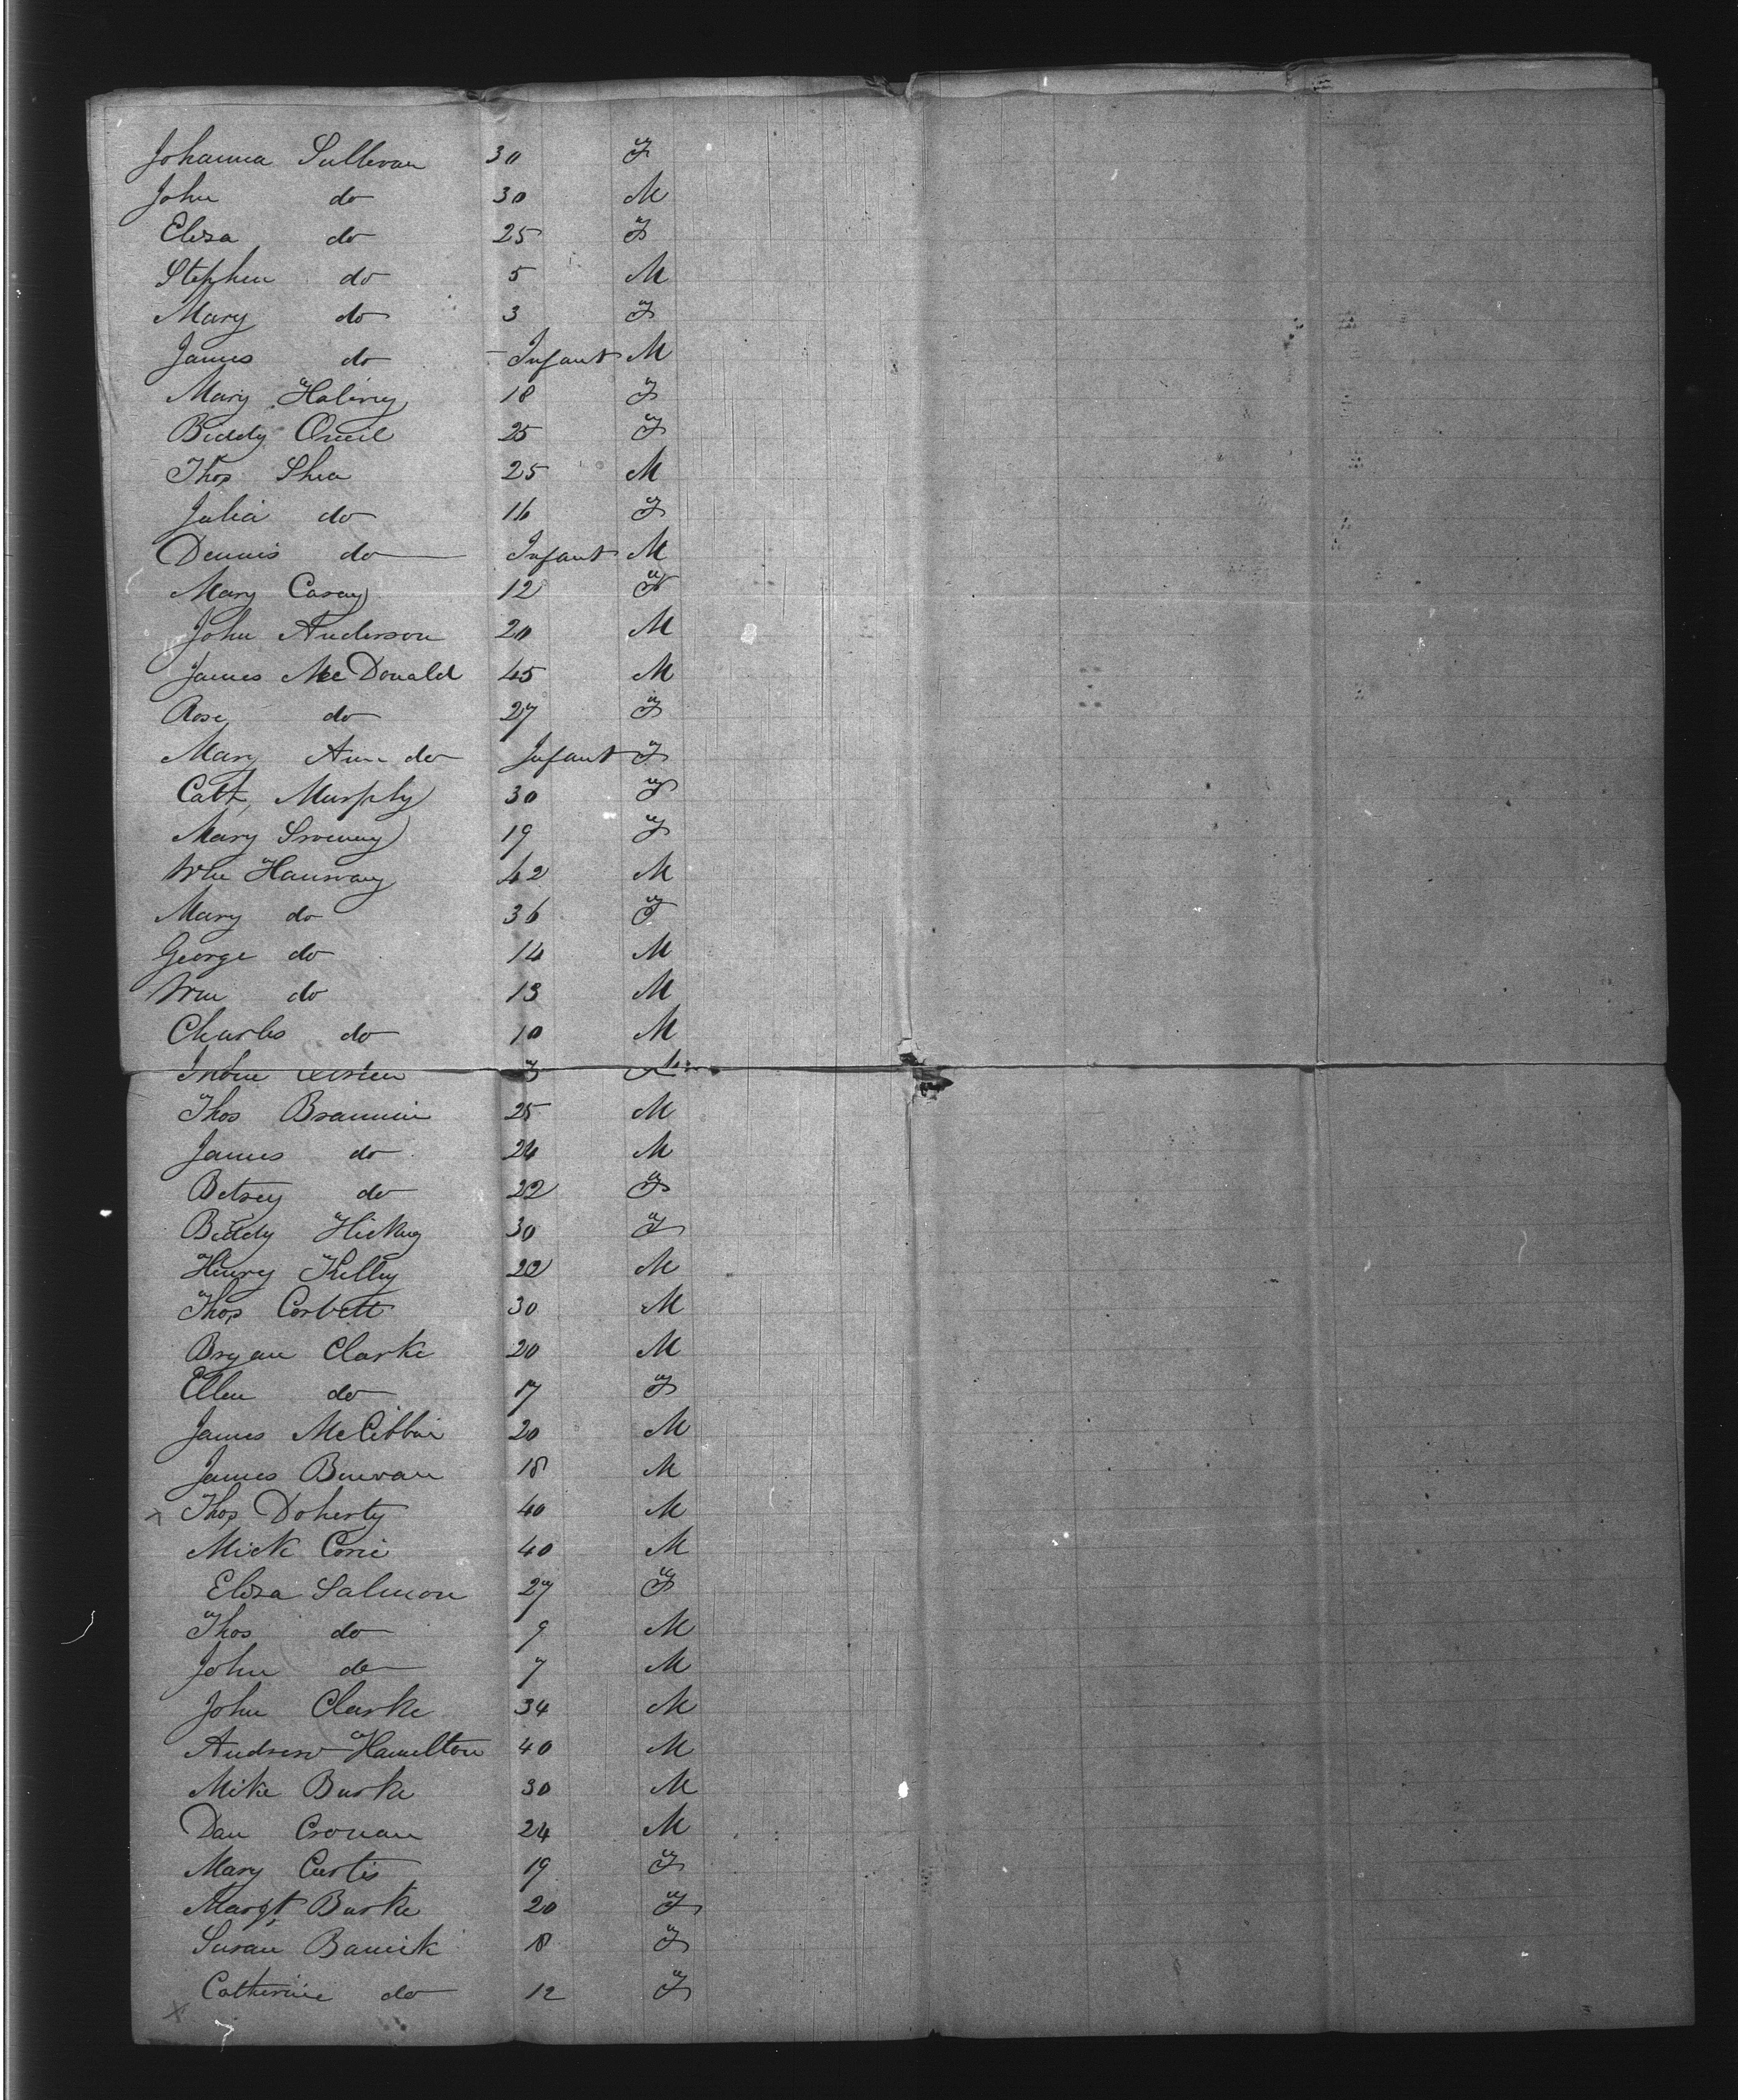 Johanna Sullivan 30 F
John do 30 M
Eliza do 25 F
Stephen do 5 M
Mary do 3 F
James do Infant M
Mary 18 F
Biddy Oneil 25 F
Thos Shea 25 M
Julia do 16 F
Dennis do Infant M
Mary Casay 12 F
John Anderson 20 M
James McDonald 45 M
Rose do 27 F
Mary Ann do Infant F
Cath, Murphy 30 F
Mary Sweeney 19 F
Wm Hanway 42 M
Mary do 36 F
George do 14 M
Wm do 13 M
Charles do 10 M
Thos Brannin 25 M
James do 24 M
Betsey do 22 F
Biddy Hickey 30 F
Henry Kelley 22 M
Thos Corbett 30 M
Bryan Clarke 20 M
Ellen do 17 F
James McCibbin 20 M
James 18 M
x Thos Doherty 40 M
Mick 40 M
Eliza Salmon 27 F
Thos do 9 M
John do 7 M
John Clarke 34 M
Andrew Hamilton 40 M
Mike Burke 30 M
Dan Cronan 24 M
Mary Curtis 19 F
Margt Burke 20 F
Susan 18 F
Catherine do 12 F
x